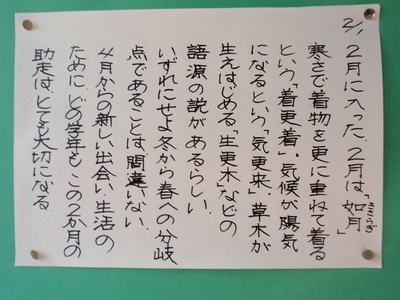 2/1
2月に入った。2月は「如月」
きさらぎ
寒さで着物を更に重ねて着る
という「着更着」。気候が陽気
になるという「気更来」草木が
生えはじめる「生更木」などの
語源の説があるらしい。
いずれにせよ冬から春への分岐
点であることは、間違いない。
4月からの新しい出会い、生活の
ために、どの学年も、この2か月の
助走は、とても大切になる。